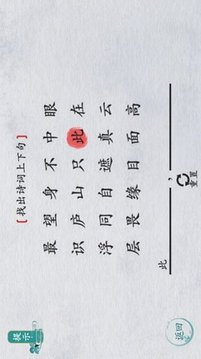 提示
[找出诗词上下句]
最望身不中眼
识庐山只此在
浮同自遮真云
层畏缘目面高
此 ，
重置
返回